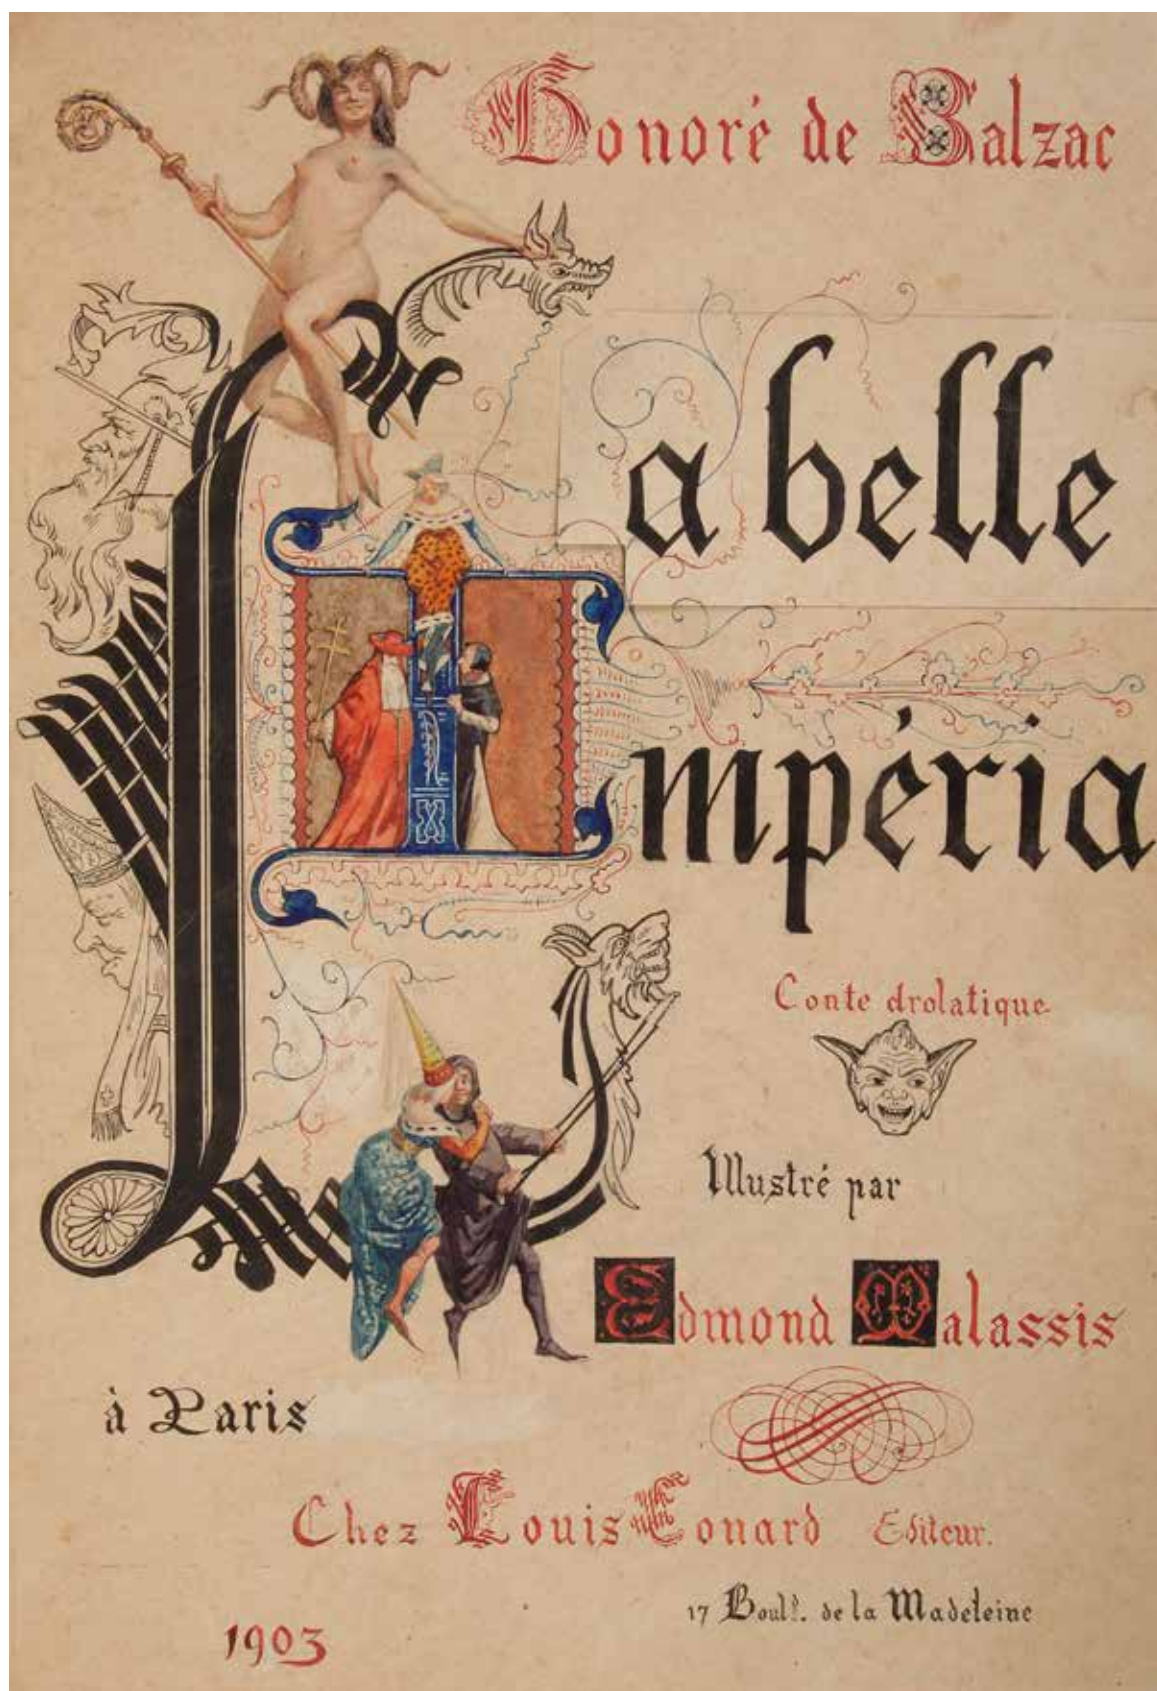 Honoré de Balzac
La belle
Impéria
Conte drolatique
Illustré par
Edmond Malassis
à Paris
Chez Louis Conard Editeur.
17 Boulᵈ. de la Madeleine
1903